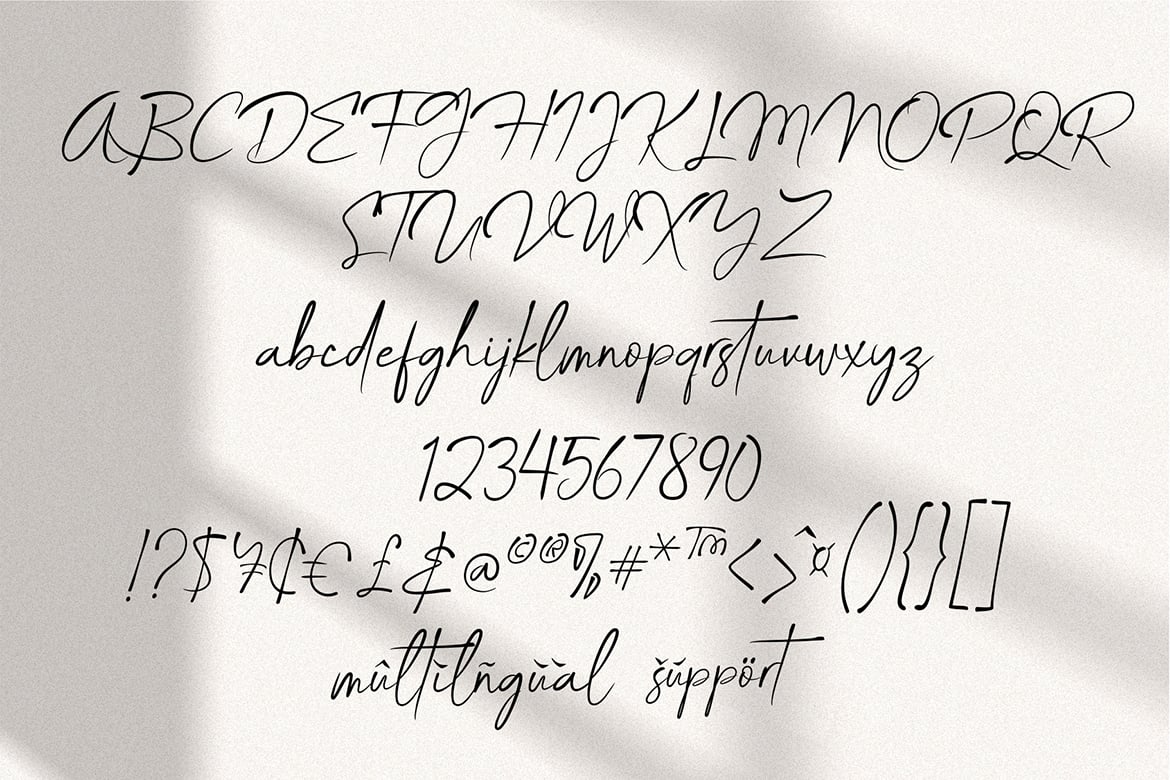 ABCDEFGHIJKLMNOPQR
STUVWXYZ
abcdefghijklmnopqrstuvwxyz
1234567890
!?$¥₵€£&@©®%#*™<>^¤(){}[]
mûltìlñgŭàl šŭppört